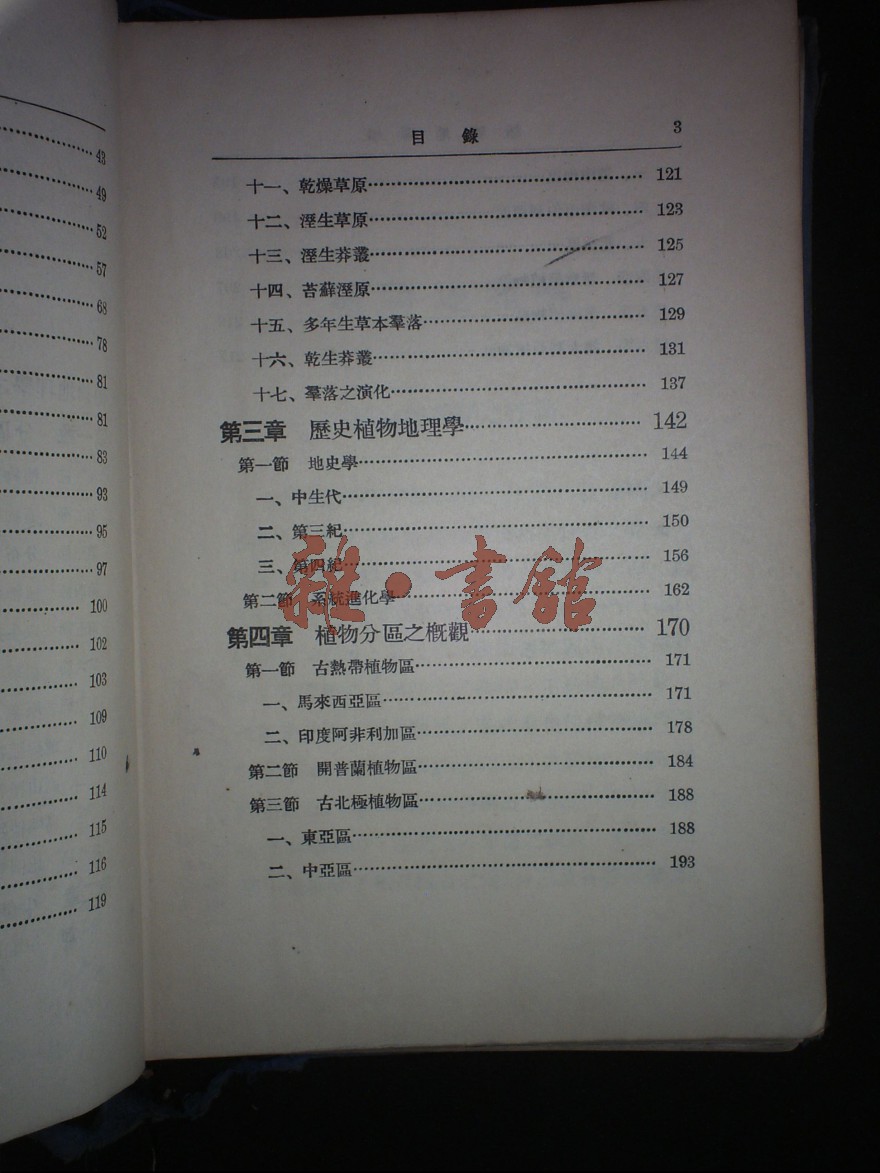 43
49
52
57
68
78
81
81
83
93
95
97
100
102
103
109
110
114
115
116
119
目錄 3
十一、乾燥草原 121
十二、溼生草原 123
十三、溼生莽叢 125
十四、苔蘚溼原 127
十五、多年生草本羣落 129
十六、乾生莽叢 131
十七、羣落之演化 137
第三章 歷史植物地理學 142
第一節 地史學 144
一、中生代 149
二、第三紀 150
三、第四紀 156
第二節 系統進化學 162
雜·書館
第四章 植物分區之概觀 170
第一節 古熱帶植物區 171
一、馬來西亞區 171
二、印度阿非利加區 178
第二節 開普蘭植物區 184
第三節 古北極植物區 188
一、東亞區 188
二、中亞區 193